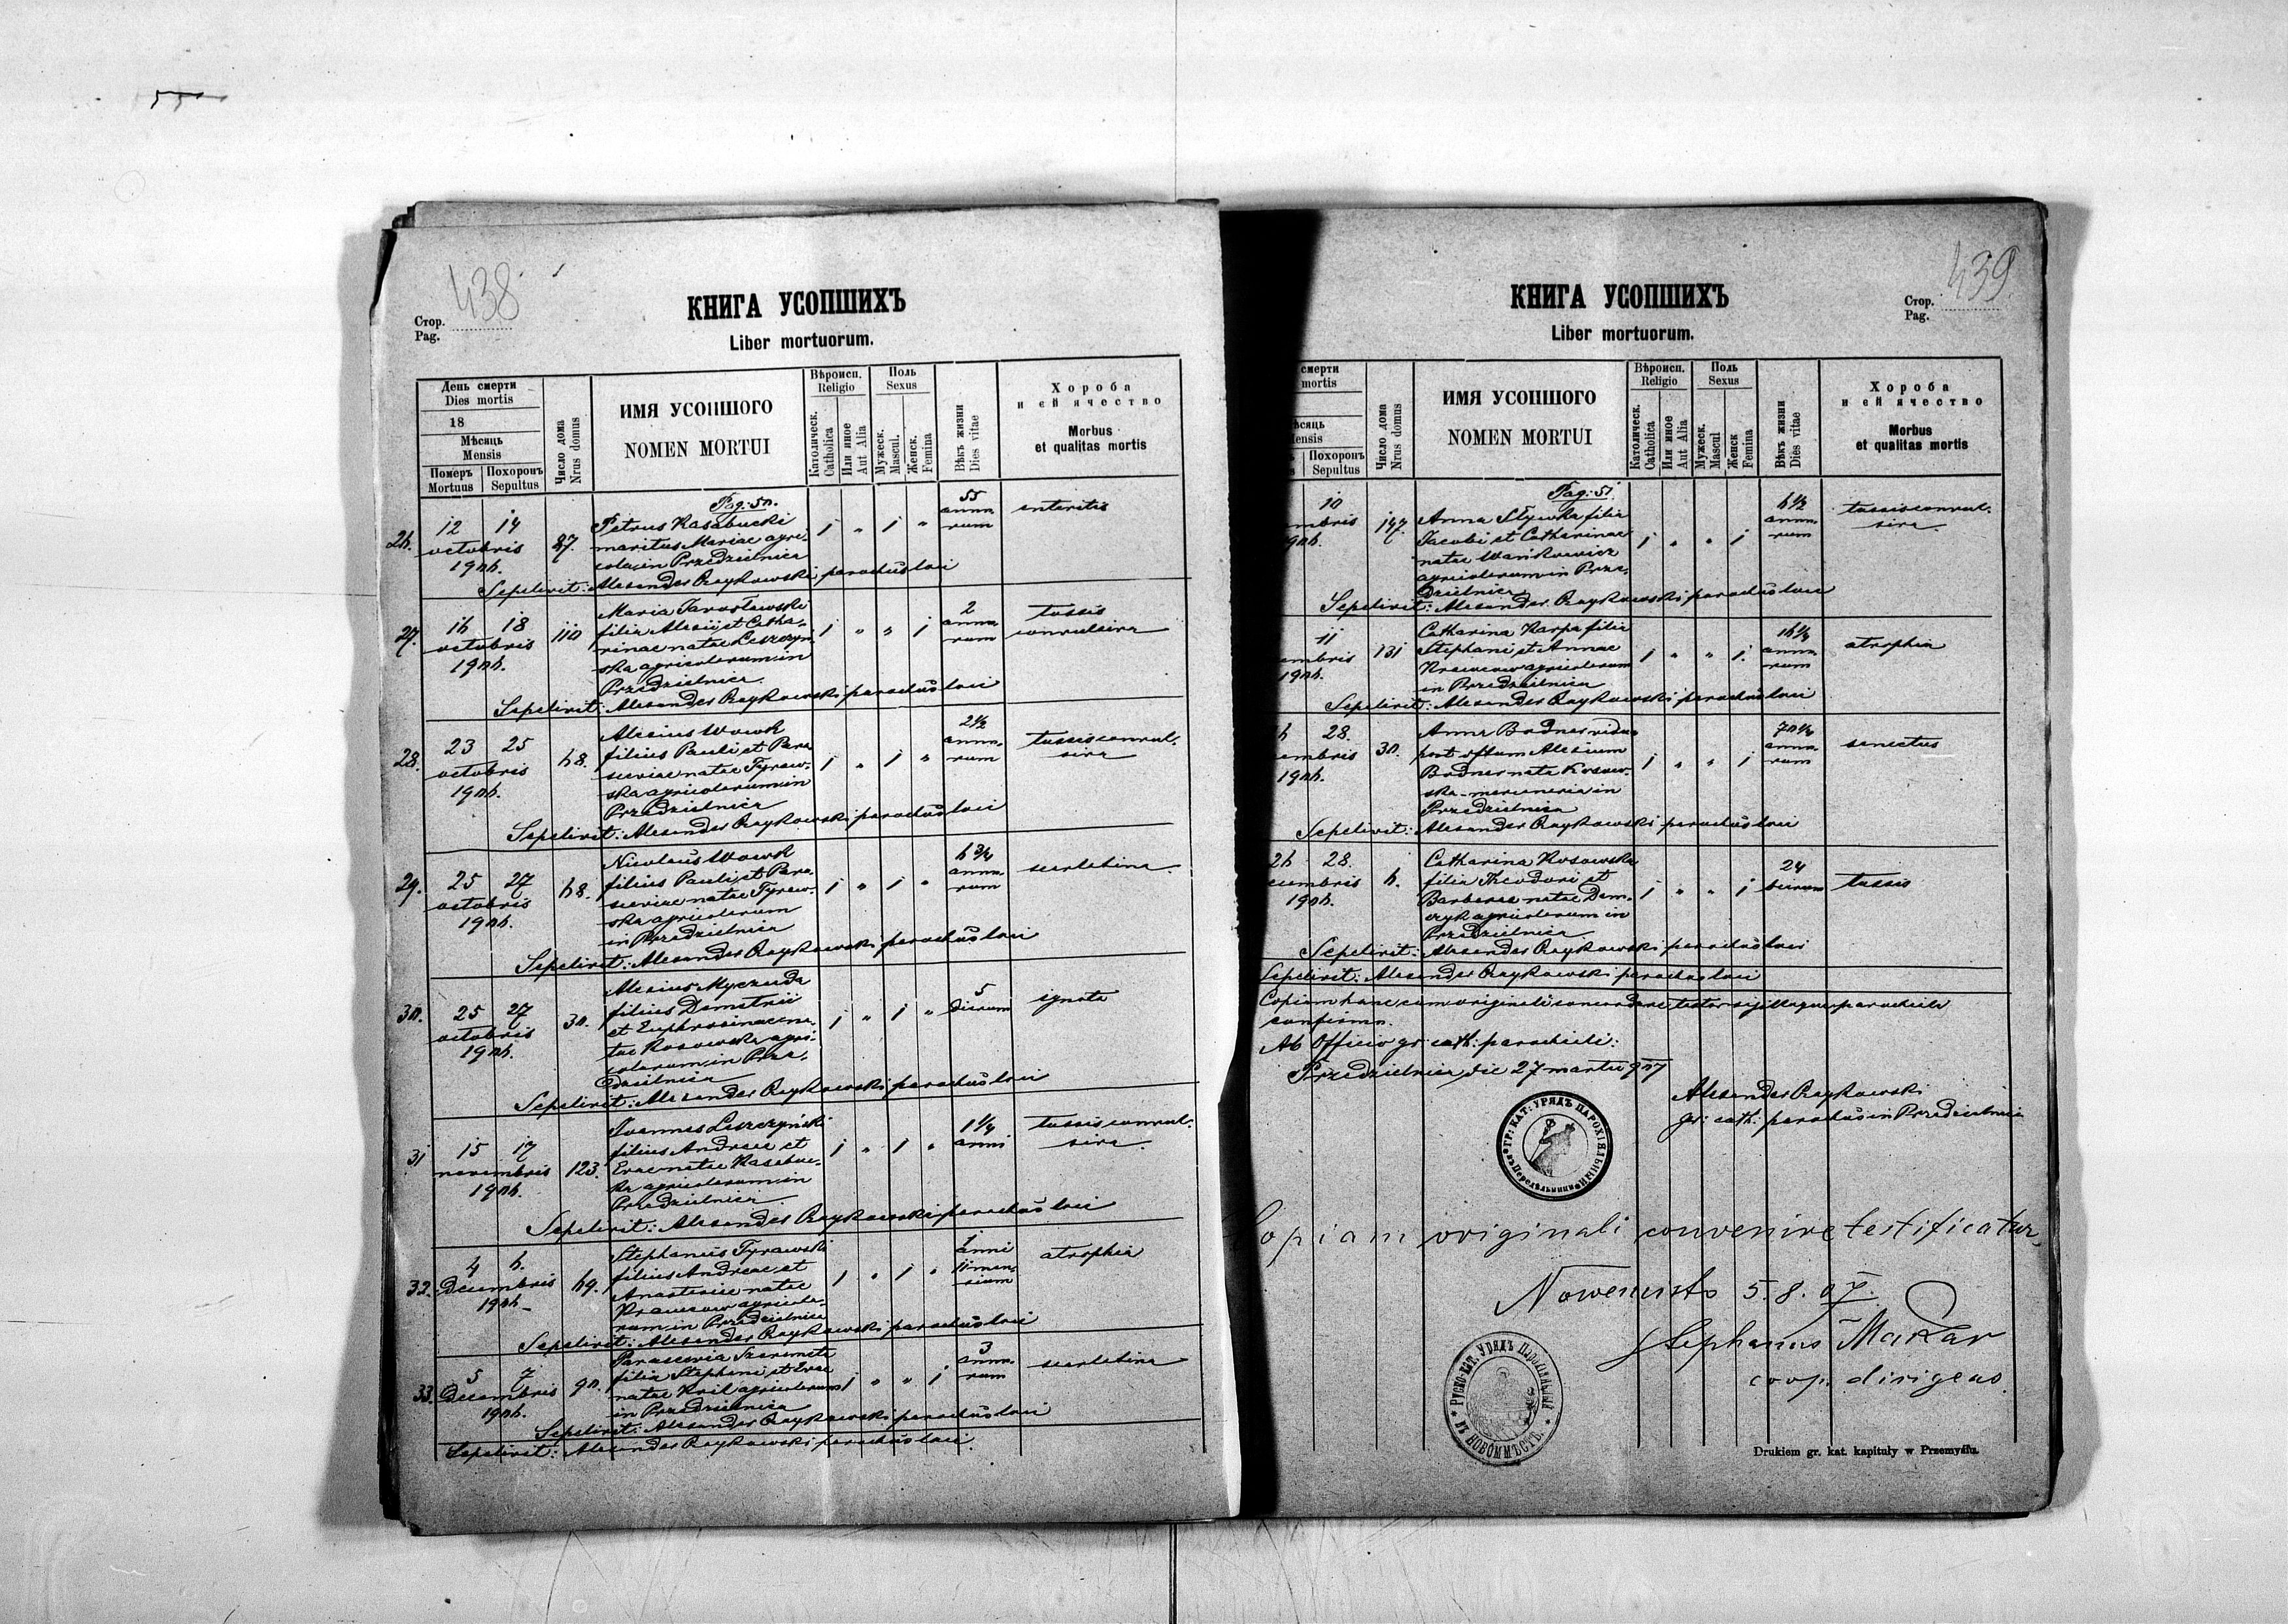 438
КНИГА УСОПШИХЪ
Стор.
Pag.
Liber mortuorum.
День смерти
Dies mortis
18
Мѣсяць
Mensis
Померъ
Mortuus
Похоронъ
Sepultus
Число дома
Nrus domus
ИМЯ УСОПШОГО
NOMEN MORTUI
Вѣроисп.
Religio
Католическ.
Catholica
Или иное
Aut Alia
Поль
Sexus
Мужеск.
Mascul.
Женск.
Femina
Вѣкъ жизни
Dies vitae
Хороба
и ей ячество
Morbus
et qualitas mortis
Pag: 50.
26. 12 14 octobris 1906. 87.
Petrus Kasabucki
maritus Mariae agri-
cola in Przedzielnica
1 " 1 " 55 annorum enteritis
Sepelivit: Alexander Czajkowski parochus loci
27. 16 18 octobris 1906. 110
Maria Jarosławski
filia Alexii et Catha-
rinae natae Leszczyń-
ska agricolarum in
Przedzielnica
1 " " 1 2 annorum tussis convulsiva
Sepelivit: Alexander Czajkowski parochus loci
28. 23 25 octobris 1906. 68.
Alexius Wowk
filius Pauli et Para
sceviae natae Tyraw-
ska agricolarum in
Przedzielnica
1 " 1 " 2 1/2 annorum tussis convulsiva
Sepelivit: Alexander Czajkowski parochus loci
29. 25 27 octobris 1906. 68.
Nicolaus Wowk
filius Pauli et Para
sceviae natae Tyraw-
ska agricolarum
in Przedzielnica
1 " 1 " 6 3/4 annorum scarlatina
Sepelivit: Alexander Czajkowski parochus loci
30. 25 27 octobris 1906. 30.
Alexius Myczuda
filius Demetrii
et Euphrosinae na-
tae Kosowska agri-
colarum in Prze-
dzielnica
1 " 1 " 5 dierum ignota
Sepelivit: Alexander Czajkowski parochus loci
31 15 17 novembris 1906. 123.
Joannes Leszczyński
filius Andreae et
Evae natae Kasabuc-
ka agricolarum in
Przedzielnica
1 " 1 " 1 1/4 anni tussis convulsiva
Sepelivit: Alexander Czajkowski parochus loci
32. 4 6. Decembris 1906 69.
Stephanus Tyrawski
filius Andreae et
Anastasiae natae
Krawcow agricola-
rum in Przedzielnica
1 " 1 " 1 anni 11 mensium atrophia
Sepelivit: Alexander Czajkowski parochus loci
33. 5 7 Decembris 1906. 90.
Parascevia Szeremeta
filia Stephani et Evae
natae Kril agricolarum
in Przedzielnica
1 " " 1 3 annorum scarlatina
Sepelivit: Alexander Czajkowski parochus loci
Sepelivit: Alexander Czajkowski parochus loci.
439
КНИГА УСОПШИХЪ
Стор.
Pag.
Liber mortuorum.
смерти
mortis
Похоронъ
Sepultus
Число дома
Nrus domus
ИМЯ УСОПШОГО
NOMEN MORTUI
Вѣроисп.
Religio
Католическ.
Catholica
Или иное
Aut Alia
Поль
Sexus
Мужеск.
Mascul
Женск
Femina
Вѣкъ жизни
Dies vitae
Хороба
и ей ячество
Morbus
et qualitas mortis
Pag: 51.
10 147.
Anna Sływka filia
Jacobi et Catharinae
natae Wańkowicz
agricolarum in Prze-
dzielnica
1 " " 1 6 1/2 annorum tussis convulsiva
Sepelivit: Alexander Czajkowski parochus loci
11 131
Catharina Karpa filia
Stephani et Annae
Krawcow agricolarum
in Przedzielnica
1 " " 1. annorum atrophia
Sepelivit: Alexander Czajkowski parochus loci
28. 30.
Anna Bodnar vidua
post defttum Alexium
Bodnar nata Kosow-
ska mercenaria in
Przedzielnica
1 " " 1 annorum senectus
Sepelivit: Alexander Czajkowski parochus loci
26 28. 1906. 6.
Catharina Kosowska
filia Theodori et
Barbarae natae Dem-
czyk agricolarum in
Przedzielnica
1 " " 1 24 dierum tussis
Sepelivit: Alexander Czajkowski parochus loci
Sepelivit: Alexander Czajkowski parochus loci
Copiam hanc cum originali concordare testor sigilloque parochiali
confirmo.
Ab Officio gr: cath: parochiali:
Przedzielnica die 27 martii 907
Alexander Czajkowski
gr: cath: parochus in Przedzielnica
ГР: КАТ: УРЯДЪ ПАРОХІЯЛЬНЫЙ
въ Передѣльници
Copiam originali convenire testificatur,
Nowemiasto 5.8.07.
Stephanus Makar
coop. dirigens
РУСКО-КАТ. УРЯДЪ ПАРОХІЯЛЬНЫЙ
ВЪ НОВОММѢСТѢ.
Drukiem gr. kat. kapituły w Przemyślu.